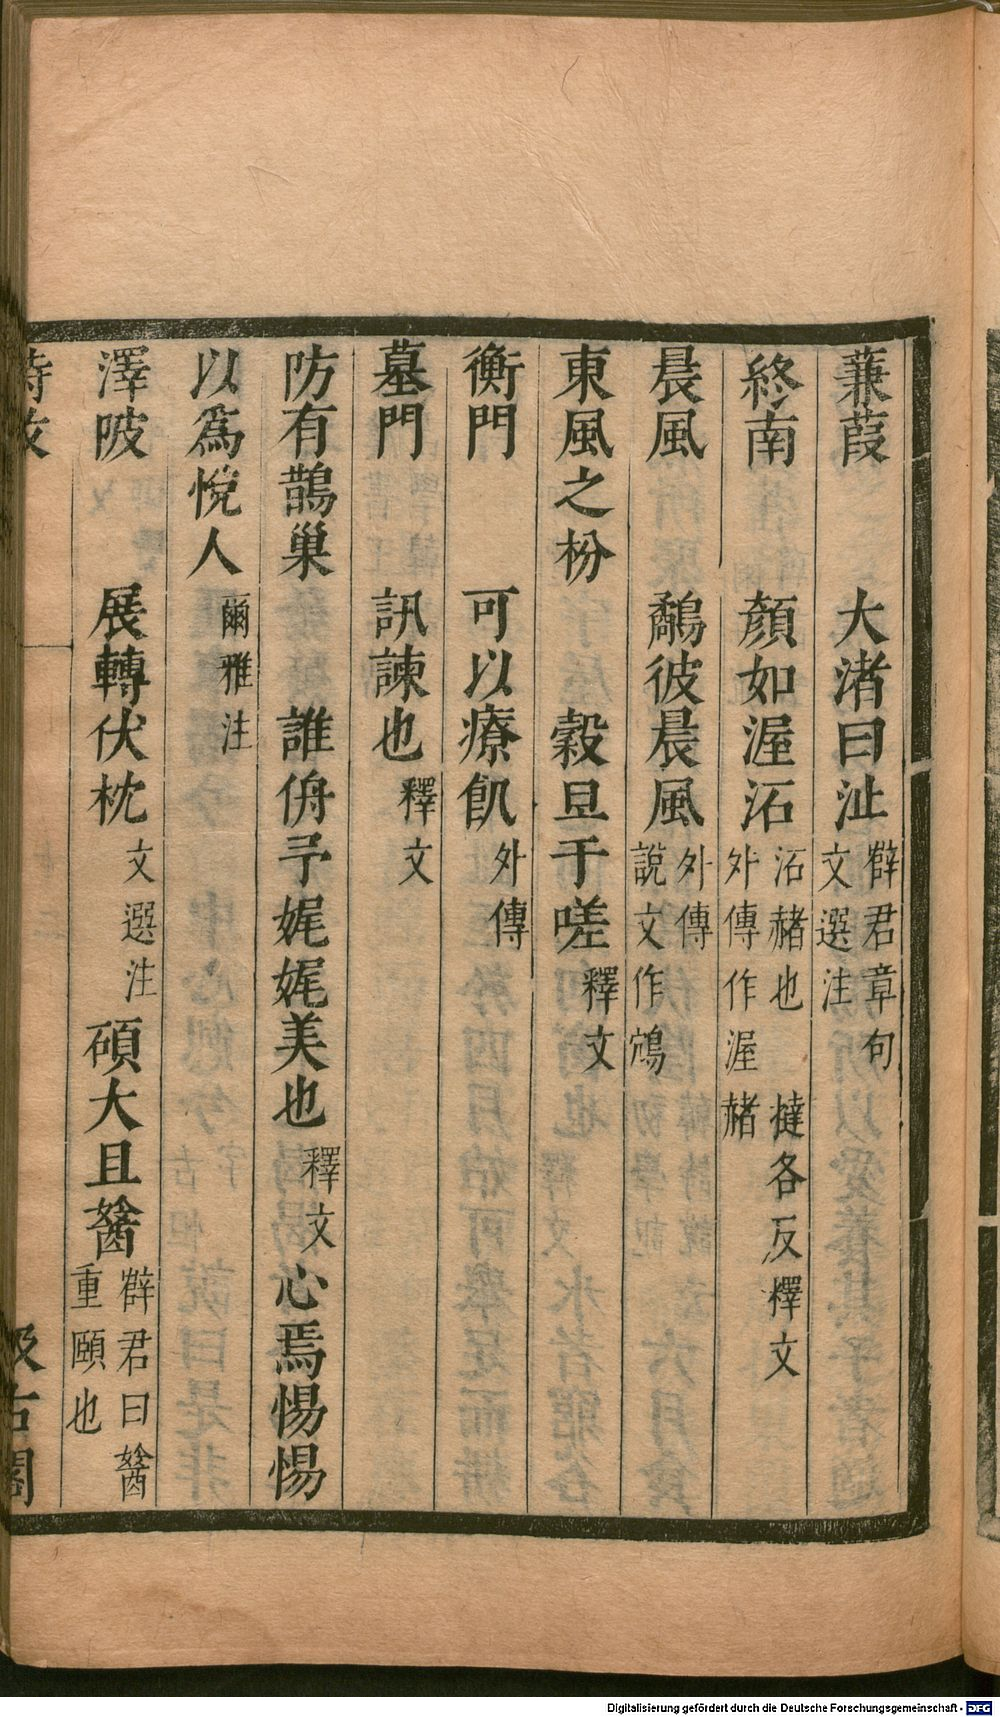 蒹葭　大渚曰沚薛君章句文選注
終南　顏如渥沰沰赭也外傳作渥赭撻各反釋文
晨風　鷸彼晨風外傳說文作鴪
東風之枌　穀旦于嗟釋文
衡門　可以療飢外傳
墓門　訊諫也釋文
防有鵲巢　誰侜予娓娓美也釋文心焉惕惕
以為悅人爾雅注
澤陂　展轉伏枕文選注碩大且㜝薛君曰㜝重頤也
詩攷　汲古閣
Digitalisierung gefördert durch die Deutsche Forschungsgemeinschaft - DFG